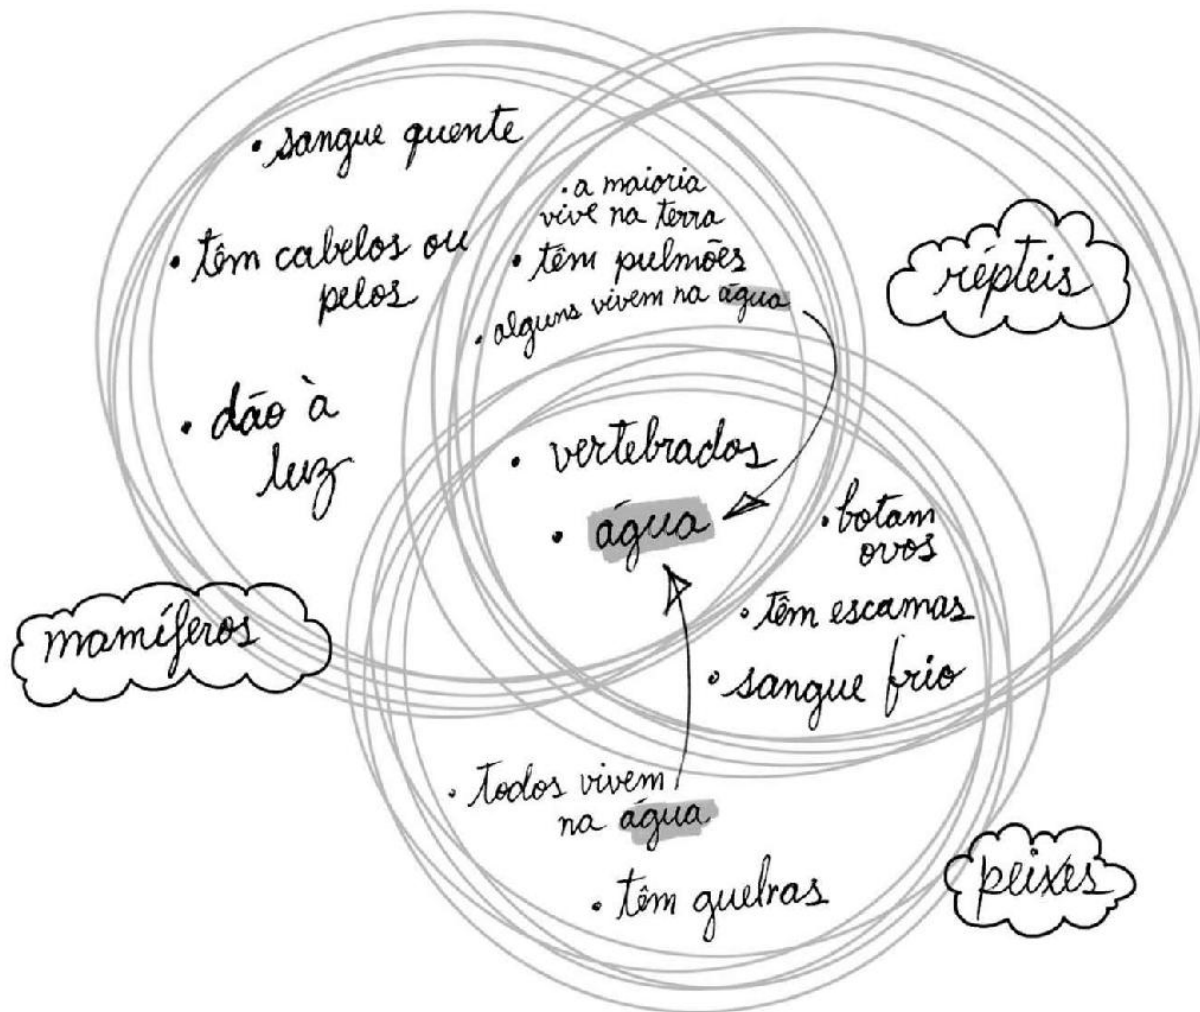 • sangue quente
• têm cabelos ou
pelos
• dão à
luz
• a maioria
vive na terra
• têm pulmões
• alguns vivem na água
répteis
• vertebrados
• água
• botam
ovos
• têm escamas
• sangue frio
mamíferos
• todos vivem
na água
• têm guelras
peixes